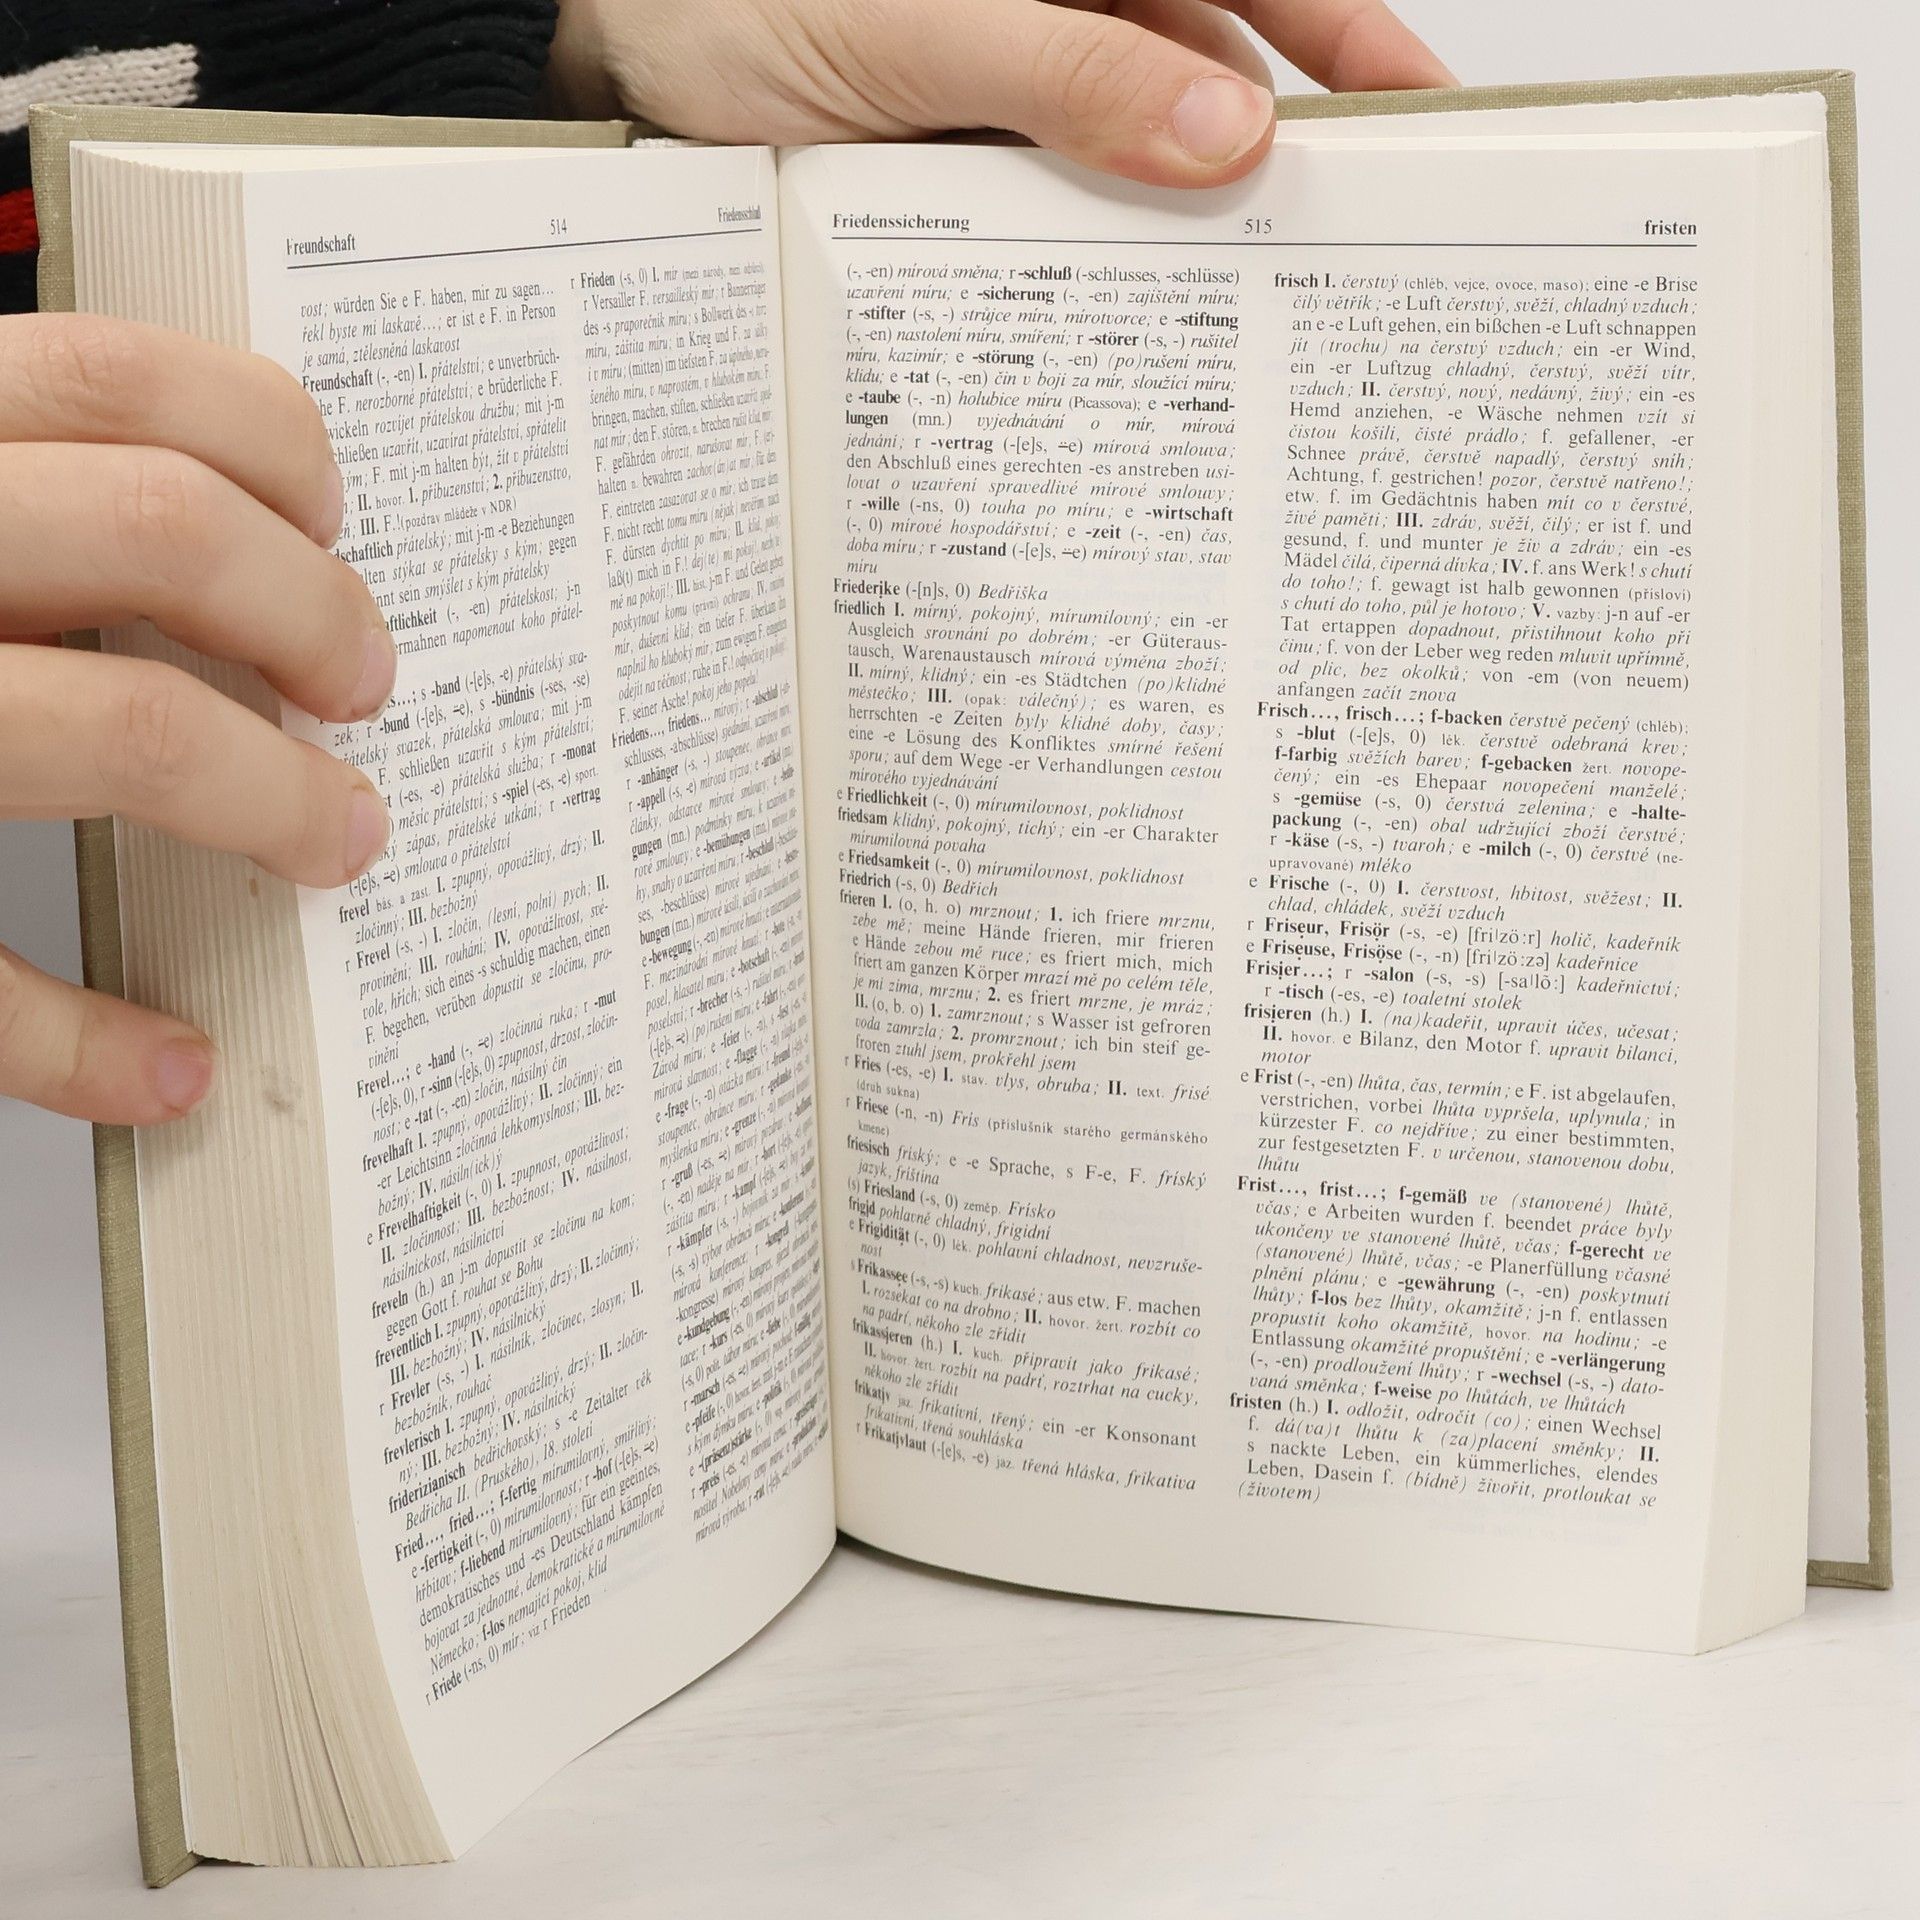 Freundschaft 514 Friedensschluß
vost; würden Sie e F. haben, mir zu sagen...
řekl byste mi laskavě...; er ist e F. in Person
je samá, ztělesněná laskavost
Freundschaft (-, -en) I. přátelství; e unverbrüch-
he F. nerozborné přátelství; e brüderliche F.
wickeln rozvíjet přátelskou družbu; mit j-m
chließen uzavřít, uzavírat přátelství, spřátelit
kým; F. mit j-m halten být, žít v přátelství
II. hovor. 1. příbuzenství; 2. příbuzenstvo,
III. F.! (pozdrav mládeže v NDR)
dschaftlich přátelský; mit j-m -e Beziehungen
alten stýkat se přátelsky s kým; gegen
nnt sein smýšlet s kým přátelsky
aftlichkeit (-, -en) přátelskost; j-n
ermahnen napomenout koho přátel-
s -band (-[e]s, -e) přátelský sva-
zek; r -bund (-[e]s, ⸚e), s -bündnis (-ses, -se)
přátelský svazek, přátelská smlouva; mit j-m
F. schließen uzavřít s kým přátelství;
(-es, -e) přátelská služba; r -monat
měsíc přátelství; s -spiel (-es, -e) sport.
ký zápas, přátelské utkání; r -vertrag
(-[e]s, ⸚e) smlouva o přátelství
frevel bás. a zast. I. zpupný, opovážlivý, drzý; II.
zločinný; III. bezbožný
r Frevel (-s, -) I. zločin, (lesní, polní) pych; II.
provinění; III. rouhání; IV. opovážlivost, své-
vole, hřích; sich eines -s schuldig machen, einen
F. begehen, verüben dopustit se zločinu, pro-
vinění
Frevel...; e -hand (-, ⸚e) zločinná ruka; r -mut
(-[e]s, 0), r -sinn (-[e]s, 0) zpupnost, drzost, zločin-
nost; e -tat (-, -en) zločin, násilný čin
frevelhaft I. zpupný, opovážlivý; II. zločinný; ein
-er Leichtsinn zločinná lehkomyslnost; III. bez-
božný; IV. násiln(ick)ý
e Frevelhaftigkeit (-, 0) I. zpupnost, opovážlivost;
II. zločinnost; III. bezbožnost; IV. násilnost,
násilnickost, násilnictví
freveln (h.) an j-m dopustit se zločinu na kom;
gegen Gott f. rouhat se Bohu
freventlich I. zpupný, opovážlivý, drzý; II. zločinný;
III. bezbožný; IV. násilnický
r Frevler (-s, -) I. násilník, zločinec, zlosyn; II.
bezbožník, rouhač
frevlerisch I. zpupný, opovážlivý, drzý; II. zločin-
ný; III. bezbožný; IV. násilnický
friderizianisch bedřichovský; s -e Zeitalter věk
Bedřicha II. (Pruského), 18. století
Fried..., fried...; f-fertig mírumilovný, smířlivý;
e -fertigkeit (-, 0) mírumilovnost; r -hof (-[e]s, ⸚e)
hřbitov; f-liebend mírumilovný; für ein geeintes,
demokratisches und -es Deutschland kämpfen
bojovat za jednotné, demokratické a mírumilovné
Německo; f-los nemající pokoj, klid
r Friede (-ns, 0) mír; viz r Frieden
r Frieden (-s, 0) I. mír (mezi národy, mezi
r Versailler F. versailleský mír; r Bannerträger
des -s praporečník míru; s Bollwerk des -s tvrz
míru, záštita míru; in Krieg und F. za války
i v míru; (mitten) im tiefsten F. za úplného, neru-
šeného míru, v naprostém, v hlubokém míru; F.
bringen, machen, stiften, schließen uzavřít
nat mír; den F. stören, n. brechen rušit klid, mír;
F. gefährden ohrozit, narušovat mír; F. (er)-
halten n. bewahren zachov(áv)at mír; für den
F. eintreten zasazovat se o mír; ich traue dem
F. nicht recht tomu míru (nějak) nevěřím; nach
F. dürsten dychtit po míru; II. klid, pokoj;
laß(t) mich in F.! dej(te) mi pokoj!, nech(te)
mě na pokoji!; III. hist. j-m F. und Geleit geben
poskytnout komu (právní) ochranu; IV. vnitřní
mír, duševní klid; ein tiefer F. überkam ihn
naplnil ho hluboký mír; zum ewigen F. eingehen
odejít na věčnost; ruhe in F.! odpočívej v pokoji!
F. seiner Asche! pokoj jeho popelu!
Friedens..., friedens... mírový; r -abschluß (-ab-
schlusses, -abschlüsse) sjednání, uzavření míru;
r -anhänger (-s, -) stoupenec, obránce míru;
r -appell (-s, -e) mírová výzva; e -artikel (mn.)
články, odstavce mírové smlouvy; e -bedin-
gungen (mn.) podmínky míru, k uzavření mí-
rové smlouvy; e -bemühungen (mn.) mírové sna-
hy, snahy o uzavření míru; r -beschluß (-beschlus-
ses, -beschlüsse) mírové ujednání; e -bestre-
bungen (mn.) mírové úsilí, úsilí o zachování míru;
e -bewegung (-, -en) mírové hnutí; e internationale
F. mezinárodní mírové hnutí; r -bote (-n, -n)
posel, hlasatel míru; e -botschaft (-, -en) mírové
poselství; r -brecher (-s, -) rušitel míru; r -bruch
(-[e]s, ⸚e) (po)rušení míru; e -fahrt (-, -en)
Závod míru; e -feier (-, -n), s -fest (-es, -e)
mírová slavnost; e -flagge (-, -n) vlajka míru;
e -frage (-, -n) otázka míru; r -freund (-[e]s, -e)
stoupenec, obránce míru; r -gedanke (-ns, -n)
myšlenka míru; e -grenze (-, -n) hranice míru;
r -gruß (-es, ⸚e) mírový pozdrav; e -hoffnung
(-, -en) naděje na mír; r -hort (-[e]s, -e)
záštita míru; r -kampf (-[e]s, ⸚e) boj za mír;
r -kämpfer (-s, -) bojovník za mír; s -komitee
(-s, -s) výbor obránců míru; e -konferenz (-, -en)
mírová konference; r -kongreß (-kongresses,
-kongresse) mírový kongres, sjezd obránců míru;
e -kundgebung (-, -en) mírový projev, mírová manifes-
tace; r -kurs (-es, 0) mírový kurs
Friedenssicherung 515 fristen
(-, -en) mírová směna; r -schluß (-schlusses, -schlüsse)
uzavření míru; e -sicherung (-, -en) zajištění míru;
r -stifter (-s, -) strůjce míru, mírotvorce; e -stiftung
(-, -en) nastolení míru, smíření; r -störer (-s, -) rušitel
míru, kazimír; e -störung (-, -en) (po)rušení míru,
klidu; e -tat (-, -en) čin v boji za mír, sloužící míru;
e -taube (-, -n) holubice míru (Picassova); e -verhand-
lungen (mn.) vyjednávání o mír, mírová
jednání; r -vertrag (-[e]s, ⸚e) mírová smlouva;
den Abschluß eines gerechten -es anstreben usi-
lovat o uzavření spravedlivé mírové smlouvy;
r -wille (-ns, 0) touha po míru; e -wirtschaft
(-, 0) mírové hospodářství; e -zeit (-, -en) čas,
doba míru; r -zustand (-[e]s, ⸚e) mírový stav, stav
míru
Friederike (-[n]s, 0) Bedřiška
friedlich I. mírný, pokojný, mírumilovný; ein -er
Ausgleich srovnání po dobrém; -er Güteraus-
tausch, Warenaustausch mírová výměna zboží;
II. mírný, klidný; ein -es Städtchen (po)klidné
městečko; III. (opak: válečný); es waren, es
herrschten -e Zeiten byly klidné doby, časy;
eine -e Lösung des Konfliktes smírné řešení
sporu; auf dem Wege -er Verhandlungen cestou
mírového vyjednávání
e Friedlichkeit (-, 0) mírumilovnost, poklidnost
friedsam klidný, pokojný, tichý; ein -er Charakter
mírumilovná povaha
e Friedsamkeit (-, 0) mírumilovnost, poklidnost
Friedrich (-s, 0) Bedřich
frieren I. (o, h. o) mrznout; 1. ich friere mrznu,
zebe mě; meine Hände frieren, mir frieren
e Hände zebou mě ruce; es friert mich, mich
friert am ganzen Körper mrazí mě po celém těle,
je mi zima, mrznu; 2. es friert mrzne, je mráz;
II. (o, b. o) 1. zamrznout; s Wasser ist gefroren
voda zamrzla; 2. promrznout; ich bin steif ge-
froren ztuhl jsem, prokřehl jsem
r Fries (-es, -e) I. stav. vlys, obruba; II. text. frisé
(druh sukna)
r Friese (-n, -n) Frís (příslušník starého germánského
kmene)
friesisch fríský; e -e Sprache, s F-e, F. fríský
jazyk, fríština
(s) Friesland (-s, 0) zeměp. Frísko
frigid pohlavně chladný, frigidní
e Frigidität (-, 0) lék. pohlavní chladnost, nevzruše-
nost
s Frikassee (-s, -s) kuch. frikasé; aus etw. F. machen
I. rozsekat co na drobno; II. hovor. žert. rozbít co
na padrť, někoho zle zřídit
frikassieren (h.) I. kuch. připravit jako frikasé;
II. hovor. žert. rozbít na padrť, roztrhat na cucky,
někoho zle zřídit
frikativ jaz. frikativní, třený; ein -er Konsonant
frikativní, třená souhláska
r Frikativlaut (-[e]s, -e) jaz. třená hláska, frikativa
frisch I. čerstvý (chléb, vejce, ovoce, maso); eine -e Brise
čilý větřík; -e Luft čerstvý, svěží, chladný vzduch;
an e -e Luft gehen, ein bißchen -e Luft schnappen
jít (trochu) na čerstvý vzduch; ein -er Wind,
ein -er Luftzug chladný, čerstvý, svěží vítr,
vzduch; II. čerstvý, nový, nedávný, živý; ein -es
Hemd anziehen, -e Wäsche nehmen vzít si
čistou košili, čisté prádlo; f. gefallener, -er
Schnee právě, čerstvě napadlý, čerstvý sníh;
Achtung, f. gestrichen! pozor, čerstvě natřeno!;
etw. f. im Gedächtnis haben mít co v čerstvé,
živé paměti; III. zdráv, svěží, čilý; er ist f. und
gesund, f. und munter je živ a zdráv; ein -es
Mädel čilá, čiperná dívka; IV. f. ans Werk! s chutí
do toho!; f. gewagt ist halb gewonnen (přísloví)
s chutí do toho, půl je hotovo; V. vazby: j-n auf -er
Tat ertappen dopadnout, přistihnout koho při
činu; f. von der Leber weg reden mluvit upřímně,
od plic, bez okolků; von -em (von neuem)
anfangen začít znova
Frisch..., frisch...; f-backen čerstvě pečený (chléb);
s -blut (-[e]s, 0) lék. čerstvě odebraná krev;
f-farbig svěžích barev; f-gebacken žert. novope-
čený; ein -es Ehepaar novopečení manželé;
s -gemüse (-s, 0) čerstvá zelenina; e -halte-
packung (-, -en) obal udržující zboží čerstvé;
r -käse (-s, -) tvaroh; e -milch (-, 0) čerstvé (ne-
upravované) mléko
e Frische (-, 0) I. čerstvost, hbitost, svěžest; II.
chlad, chládek, svěží vzduch
r Friseur, Frisör (-s, -e) [fri|zö:r] holič, kadeřník
e Friseuse, Frisöse (-, -n) [fri|zö:zə] kadeřnice
Frisier...; r -salon (-s, -s) [-sa|lõ:] kadeřnictví;
r -tisch (-es, -e) toaletní stolek
frisieren (h.) I. (na)kadeřit, upravit účes, učesat;
II. hovor. e Bilanz, den Motor f. upravit bilanci,
motor
e Frist (-, -en) lhůta, čas, termín; e F. ist abgelaufen,
verstrichen, vorbei lhůta vypršela, uplynula; in
kürzester F. co nejdříve; zu einer bestimmten,
zur festgesetzten F. v určenou, stanovenou dobu,
lhůtu
Frist..., frist...; f-gemäß ve (stanovené) lhůtě,
včas; e Arbeiten wurden f. beendet práce byly
ukončeny ve stanovené lhůtě, včas; f-gerecht ve
(stanovené) lhůtě, včas; -e Planerfüllung včasné
plnění plánu; e -gewährung (-, -en) poskytnutí
lhůty; f-los bez lhůty, okamžitě; j-n f. entlassen
propustit koho okamžitě, hovor. na hodinu; -e
Entlassung okamžité propuštění; e -verlängerung
(-, -en) prodloužení lhůty; r -wechsel (-s, -) dato-
vaná směnka; f-weise po lhůtách, ve lhůtách
fristen (h.) I. odložit, odročit (co); einen Wechsel
f. dá(va)t lhůtu k (za)placení směnky; II.
s nackte Leben, ein kümmerliches, elendes
Leben, Dasein f. (bídně) živořit, protloukat se
(životem)